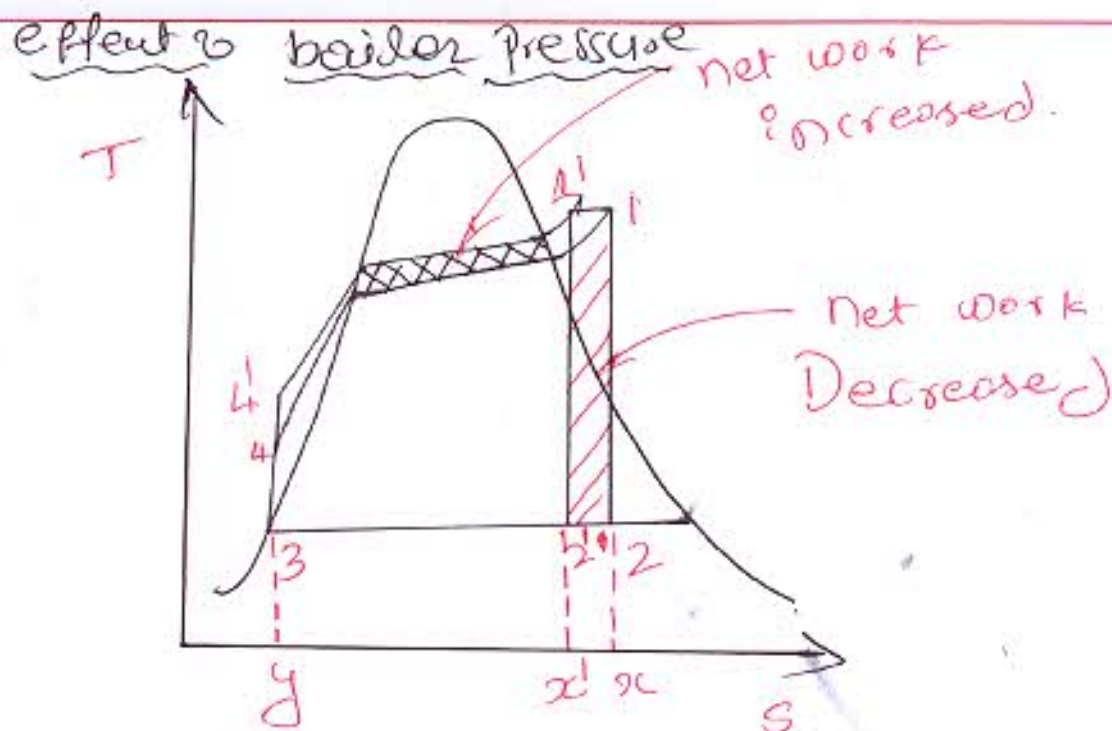 effect of boiler pressure
net work
increased.
T
1'
1
net work
Decreased
4'
4
3
2'
2
y
x'
x
S